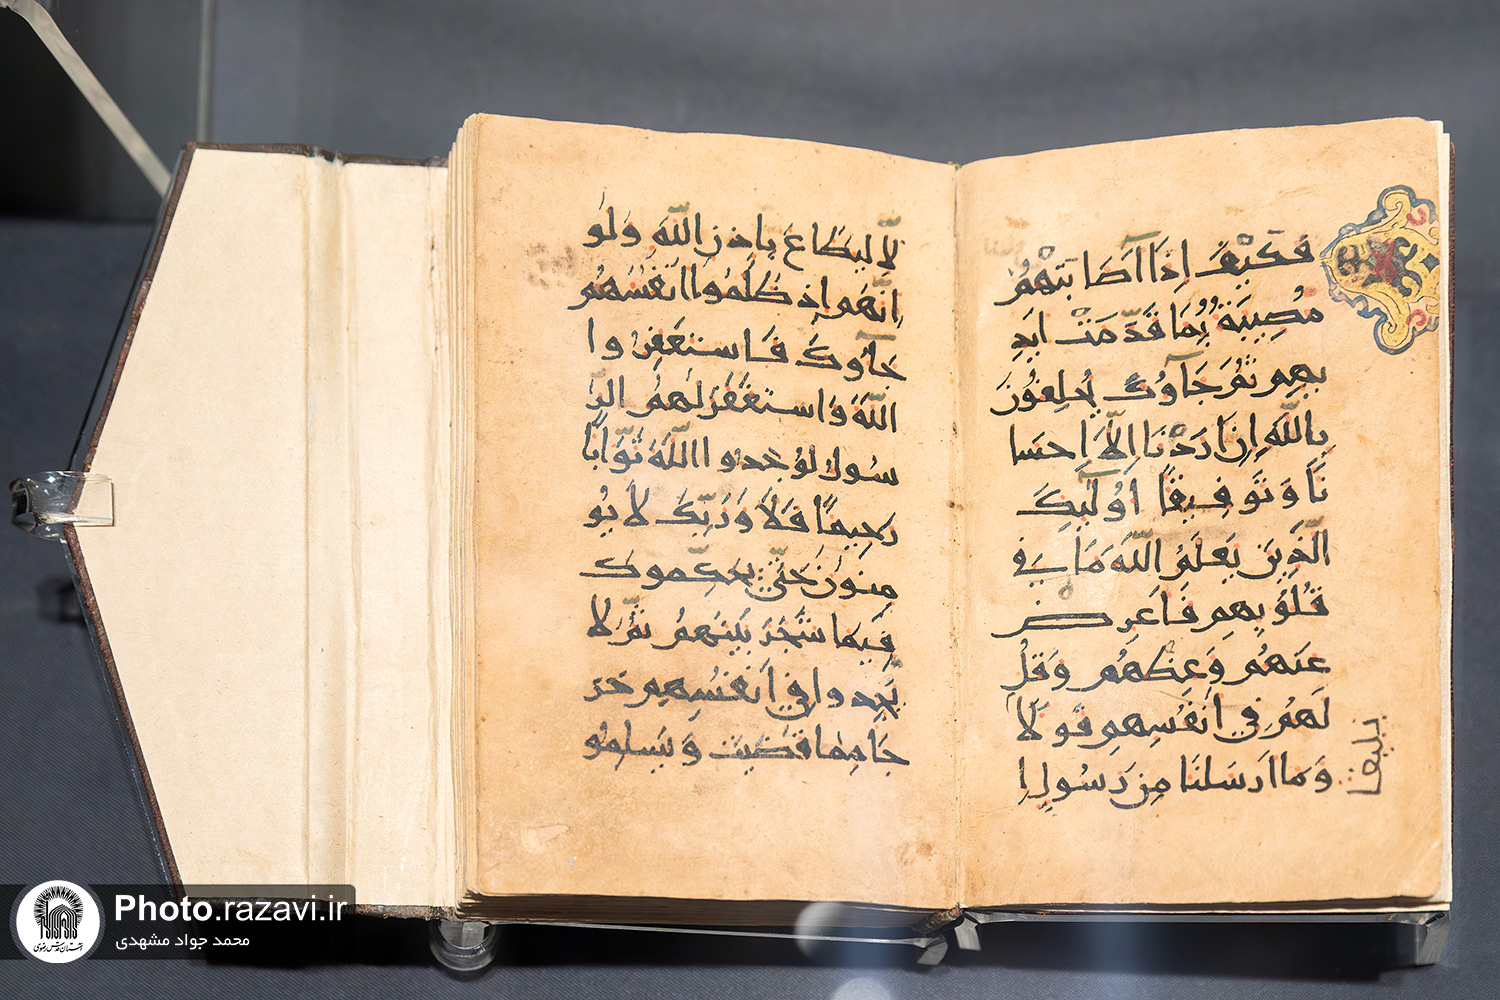 فَكَيْفَ اِذَا اَصَابَتْهُمْ
مُصِيبَةٌ بِمَا قَدَّمَتْ اَيدِ
يهِم ثُمَّ جَآؤُكَ يَحلِفُونَ
بِاللّٰهِ اِن اَرَدْنَا اِلَّا اِحسَا
نًا وَتَوفِيقًا اُولٰٓئِكَ
الَّذِينَ يَعلَمُ اللّٰهُ مَا فِي
قُلُوبِهِم فَاَعرِض
عَنهُم وَعِظهُم وَقُل
لَهُم فِي اَنفُسِهِم قَولًا
بليغا
وَمَا اَرسَلنَا مِن رَسُولٍ اِ
لَّا لِيُطَاعَ بِاِذنِ اللّٰهِ وَلَو
اَنَّهُم اِذ ظَلَمُوا اَنفُسَهُم
جَآؤكَ فَاستَغفَرُوا
اللّٰهَ وَاستَغفَرَ لَهُمُ الرَّ
سُولُ لَوَجَدُوا اللّٰهَ تَوَّابًا
رَحِيمًا فَلَا وَرَبِّكَ لَا يُو
مِنُونَ حَتّٰي يُحَكِّمُوكَ
فِيمَا شَجَرَ بَينَهُم ثُمَّ لَا
يَجِدُوا فِي اَنفُسِهِم حَرَ
جًا مِمَّا قَضَيتَ وَيُسَلِّمُو
Photo.razavi.ir
محمد جواد مشهدی
آستان قدس رضوی